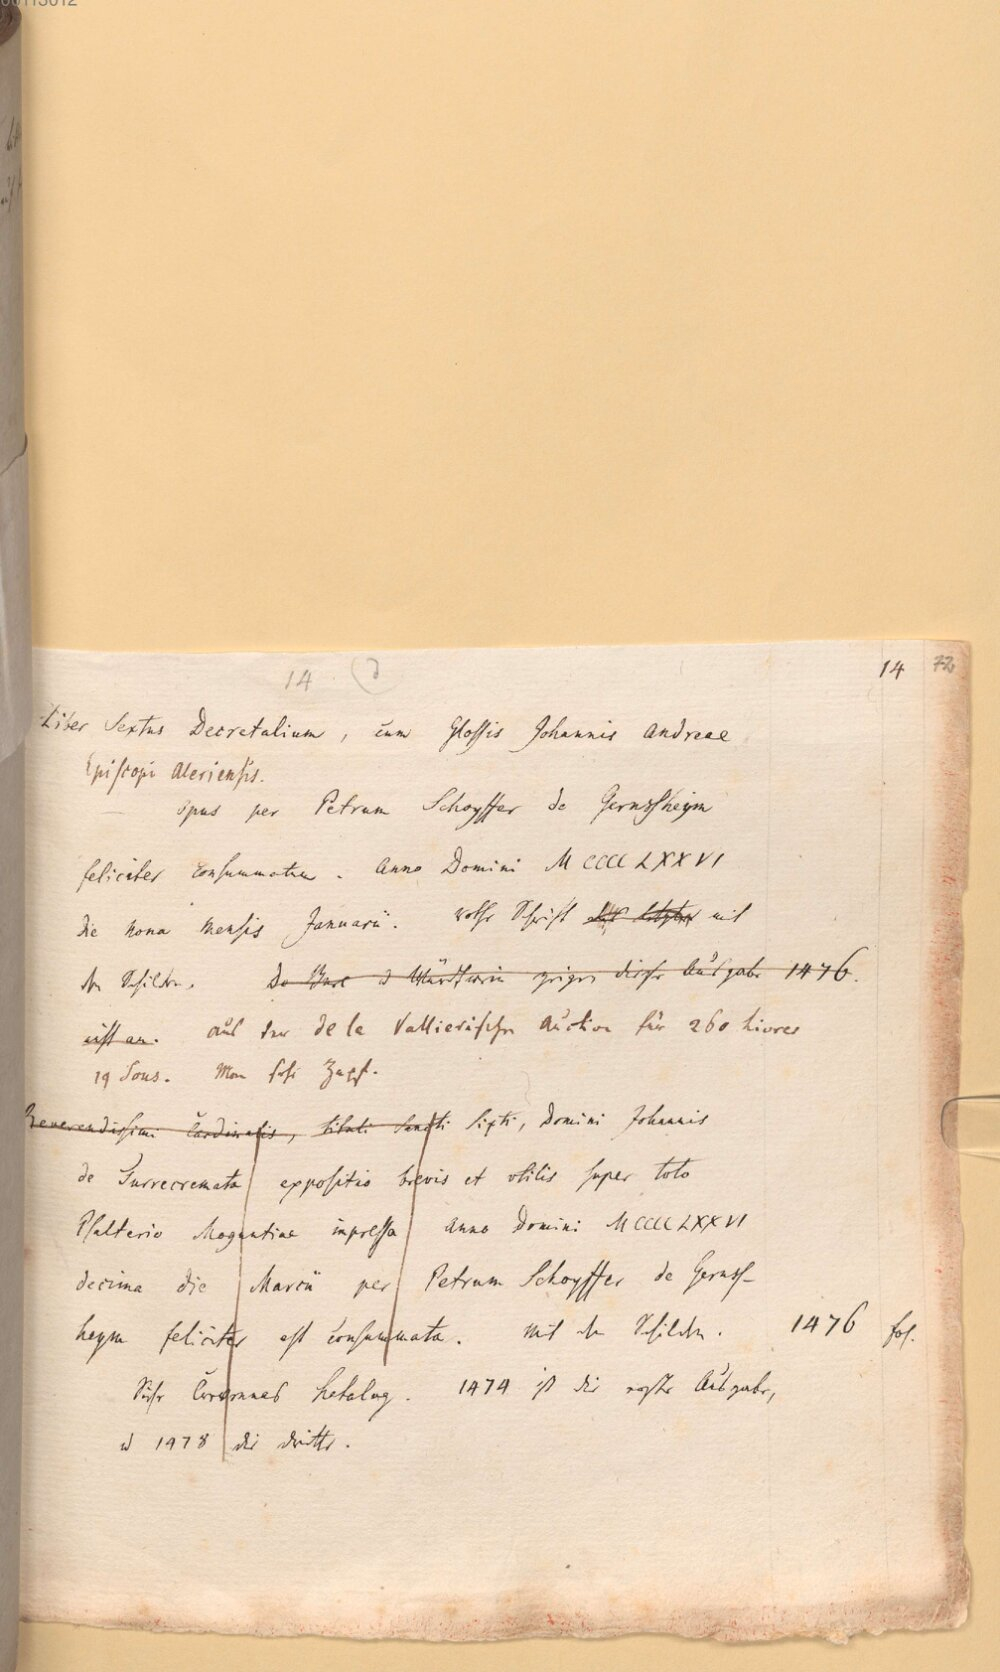 00113012
14 (d)
14 72
Liber Sextus Decretalium, cum Glossis Johannis Andreae
Episcopi Aleriensis.
— Opus per Petrum Schoyffer de Gernssheym
feliciter consummatum. Anno Domini MCCCCLXXVI
die nona mensis Januarii. rothe Schrift mit
den Schilden. De Bure u Würdtwein zeigen diese Ausgabe 1476.
nicht an. aus der de la Vallierischen Auction für 260 Livres
19 Sous. Man sehe Zapf.
Reverendissimi Cardinalis, tituli Sancti Sixti, Domini Johannis
de Turrecremata expositio brevis et utilis super toto
Psalterio Moguntiae impressa Anno Domini MCCCCLXXVI
decima die Marcii per Petrum Schoyffer de Gernss-
heym feliciter est consummata. Mit den Schilden. 1476 fol.
Siehe Cevennes Katalog. 1474 ist die erste Ausgabe,
u 1478 die dritte.